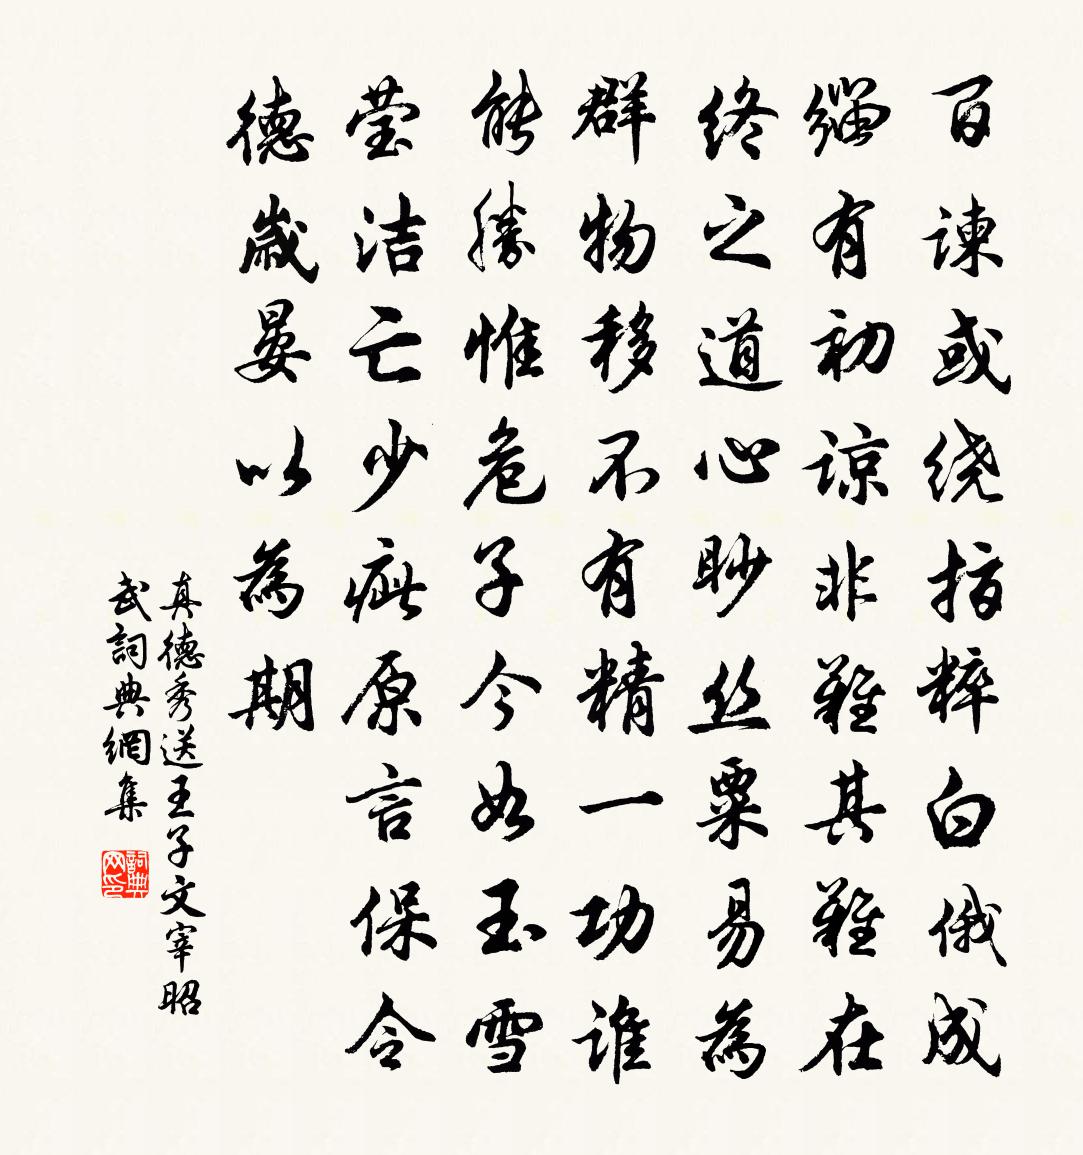 百谏或绕指粹白俄成
缁有初谅非難其難在
终之道心眇丝粟易為
群物移不有精一功谁
能勝惟危子今如玉雪
莹洁亡少疵原言保令
德歲晏以為期
真德秀送王子文宰昭
武詞典網集
詞典网印